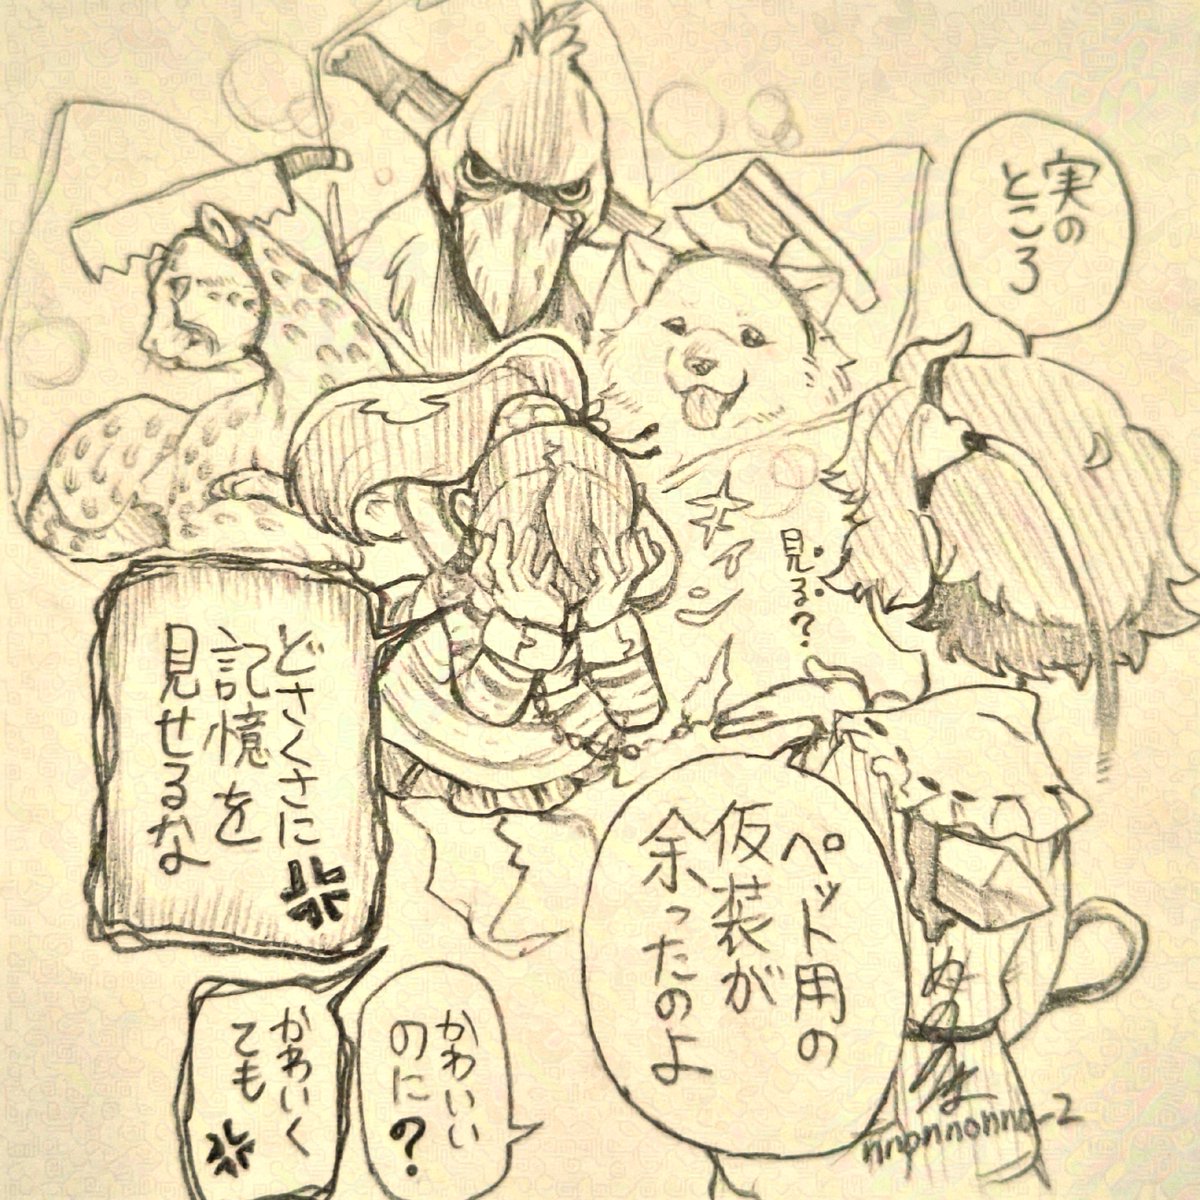 実の
ところ
キィン
見る?
ペット用の
仮装が
余ったのよ
どさくさに
記憶を
見せるな
かわいい
のに?
かわいく
ても
nnonnonno_2